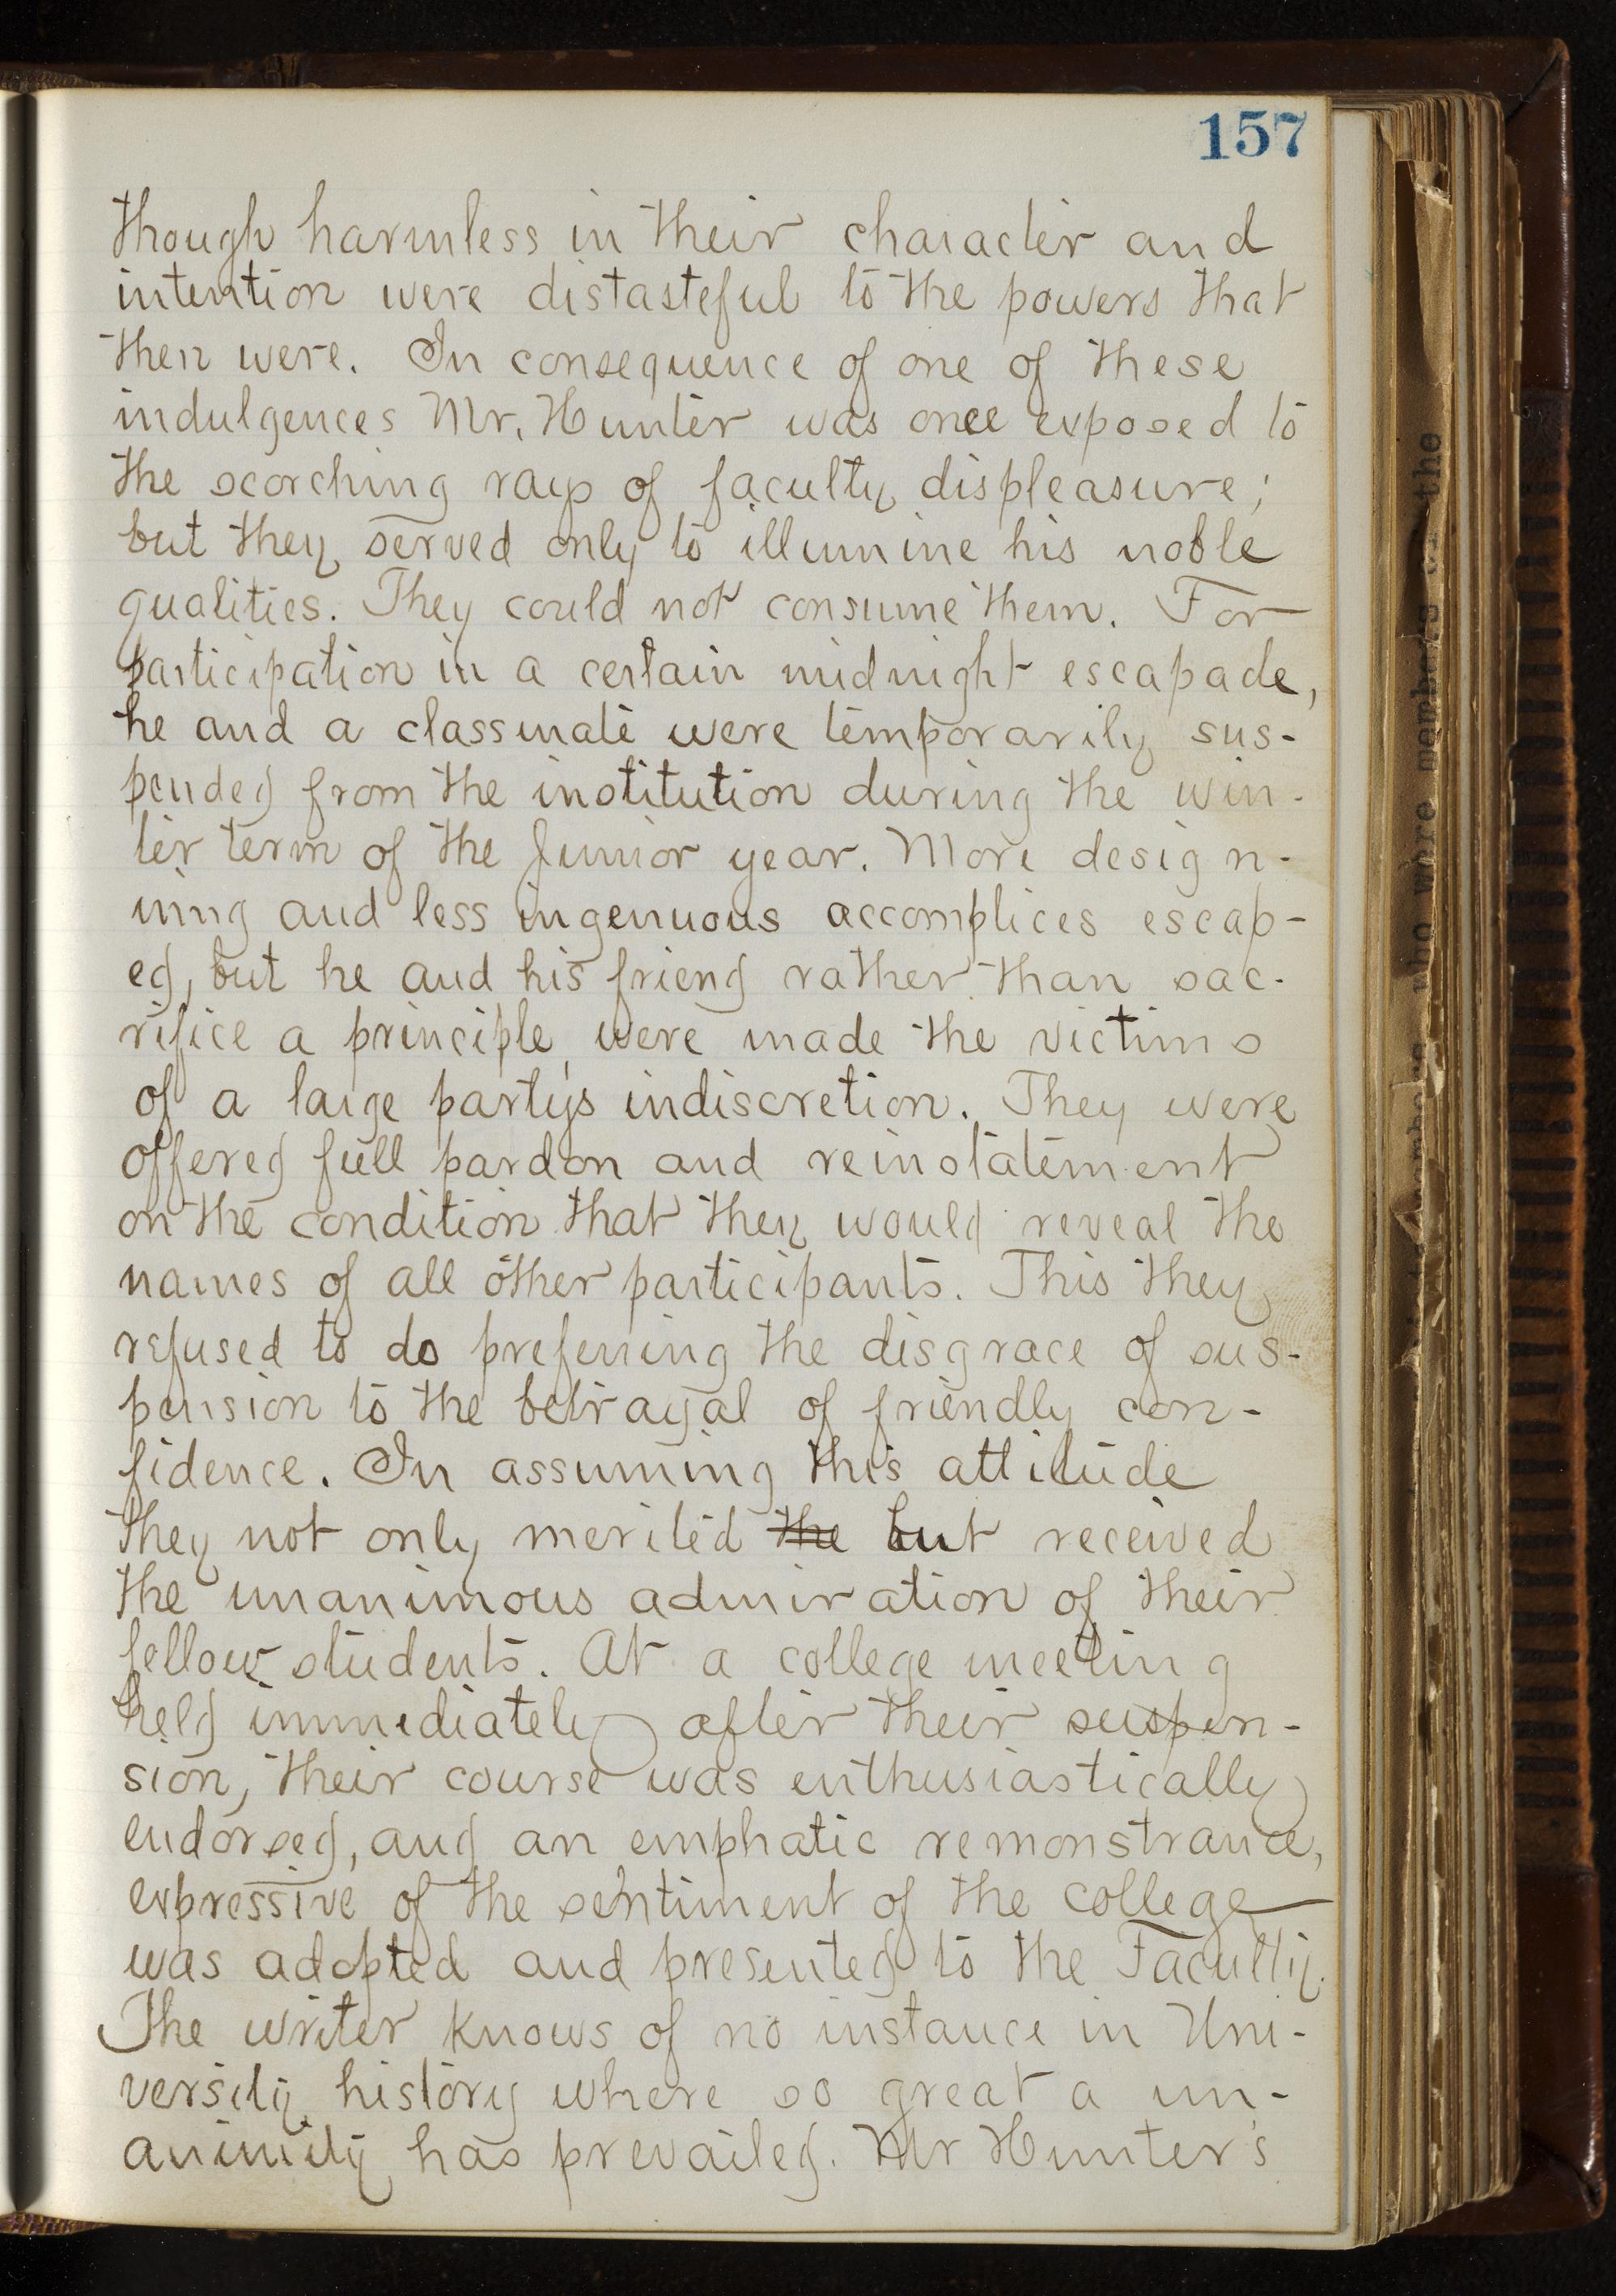 157
though harmless in their character and
intention were distasteful to the powers that
then were. In consequence of one of these
indulgences Mr. Hunter was once exposed to
the scorching rays of faculty displeasure;
but they served only to illumine his noble
qualities. They could not consume them. For
participation in a certain midnight escapade,
he and a classmate were temporarily sus-
pended from the institution during the win-
ter term of the Junior year. More design-
ning and less ingenuous accomplices escap-
ed, but he and his friend rather than sac-
rifice a principle, were made the victims
of a large party's indiscretion. They were
offered full pardon and reinstatement
on the condition that they would reveal the
names of all other participants. This they
refused to do preferring the disgrace of sus-
pension to the betrayal of friendly con-
fidence. In assuming this attitude
they not only merited the but received
the unanimous admiration of their
fellow students. At a college meeting
held immediately after their suspen-
sion, their course was enthusiastically
endorsed, and an emphatic remonstrance,
expressive of the sentiment of the college
was adopted and presented to the Faculty.
The writer knows of no instance in Uni-
versity history where so great a un-
animity has prevailed. Mr Hunter's
who were members of the